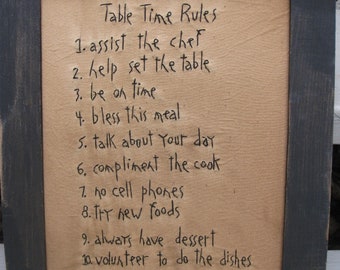 Table Time Rules
1. assist the chef
2. help set the table
3. be on time
4. bless this meal
5. talk about your day
6. compliment the cook
7. no cell phones
8. try new foods
9. always have dessert
10. volunteer to do the dishes